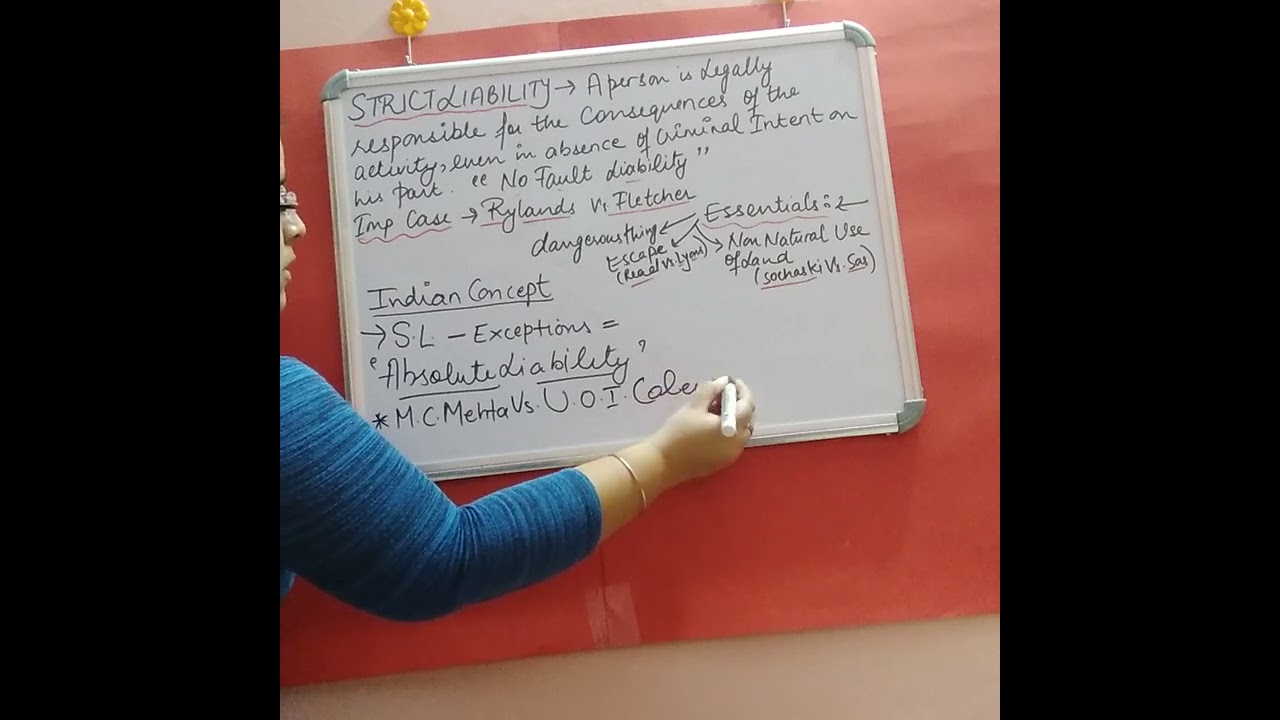 STRICT LIABILITY → A person is Legally
responsible for the Consequences of the
activity, even in absence of Criminal Intent on
his part. “ No Fault Liability ”
Imp Case → Rylands Vs Fletcher
Essentials :-
dangerous thing
Escape
(Read vs. Lyons)
→ Non Natural Use
of Land
(Sochaski Vs. Sas)
Indian Concept
→ S.L. – Exceptions =
“Absolute Liability”
* M.C. Mehta Vs. U.O.I.